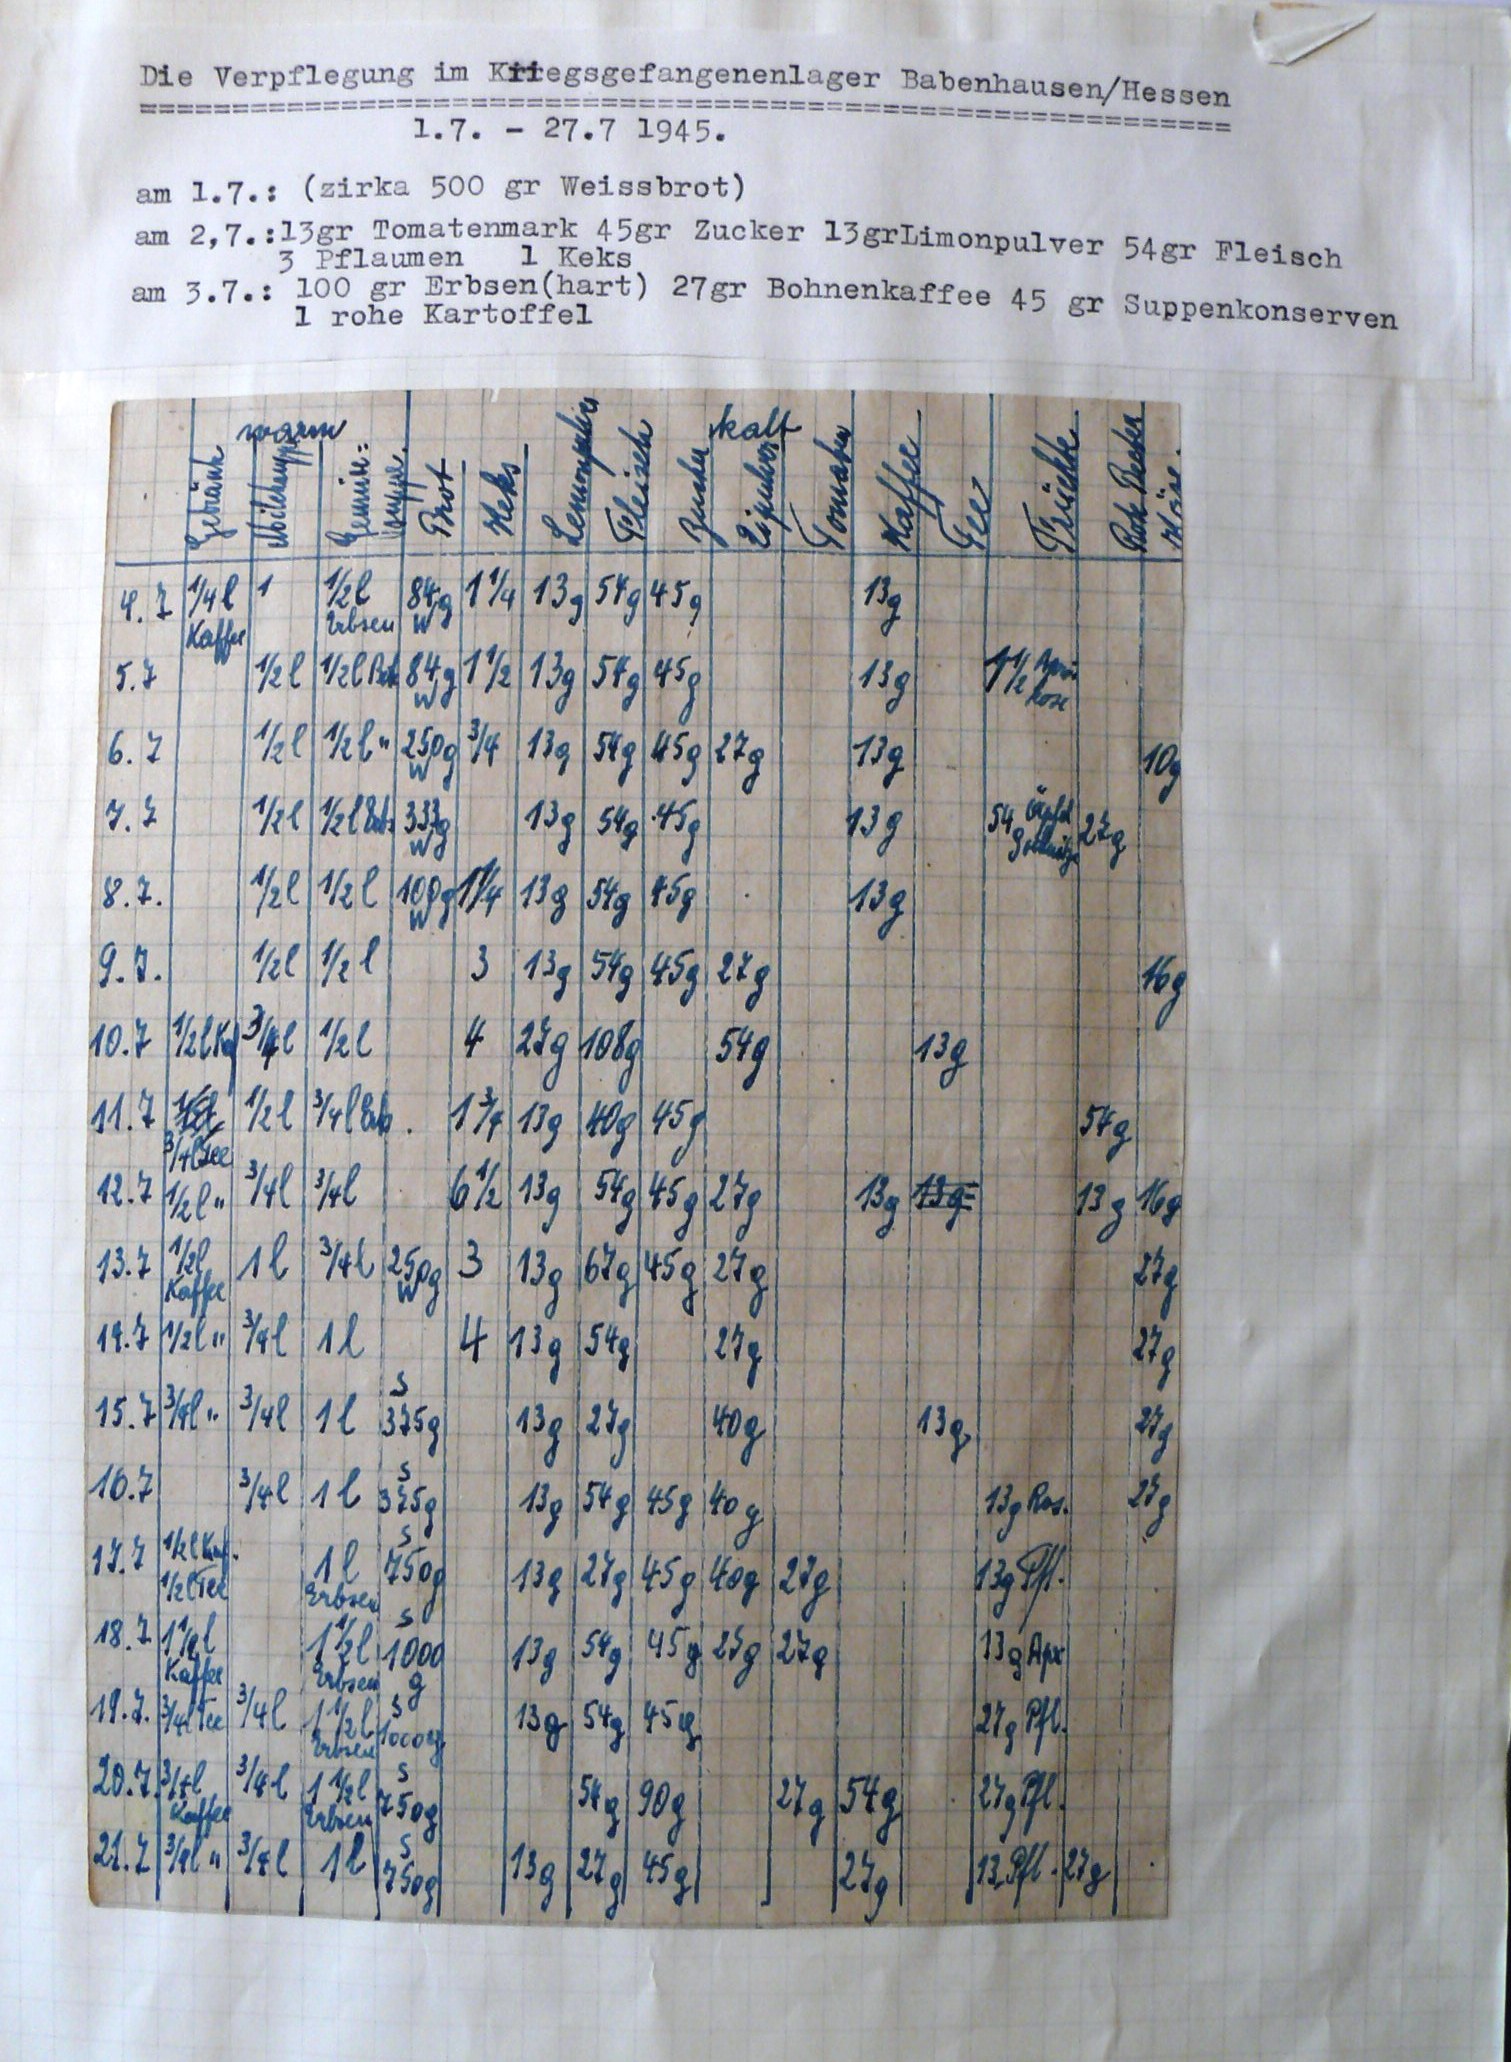 Die Verpflegung im Kriegsgefangenenlager Babenhausen/Hessen
==========================================================
1.7. - 27.7 1945.
am 1.7.: (zirka 500 gr Weissbrot)
am 2,7.:13gr Tomatenmark 45gr Zucker 13grLimonpulver 54gr Fleisch
3 Pflaumen 1 Keks
am 3.7.: 100 gr Erbsen(hart) 27gr Bohnenkaffee 45 gr Suppenkonserven
1 rohe Kartoffel
warm kalt
Getränk Milchsuppe Gemüse= suppe. Brot Keks Fleisch Zucker Eipulver Tomaten Kaffee Tee Früchte Käse.
4.7 1/4 l Kaffee 1 1/2 l Erbsen 84g W 1 1/4 13g 54g 45g 13g
5.7 1/2 l 1/2 l 84g W 1 1/2 13g 54g 45g 13g 1 1/2 Apri- kose
6.7 1/2 l 1/2 l " 250g W 3/4 13g 54g 45g 27g 13g 10g
7.7 1/2 l 1/2 l Erbs 333g W 13g 54g 45g 13g 54 g Äpfel 27g
8.7. 1/2 l 1/2 l 100g W 1 1/4 13g 54g 45g 13g
9.7. 1/2 l 1/2 l 3 13g 54g 45g 27g 16g
10.7 1/2 l Kaf 3/4 l 1/2 l 4 27g 108g 54g 13g
11.7 3/4 l Tee 1/2 l 3/4 l Erb. 1 3/4 13g 40g 45g 54g
12.7 1/2 l " 3/4 l 3/4 l 6 1/2 13g 54g 45g 27g 13g 13g 13g 16g
13.7 1/2 l Kaffee 1 l 3/4 l 250g W 3 13g 67g 45g 27g 27g
14.7 1/2 l " 3/4 l 1 l 4 13g 54g 27g 27g
15.7 3/4 l " 3/4 l 1 l S 375g 13g 27g 40g 13g 27g
16.7 3/4 l 1 l S 375g 13g 54g 45g 40g 13g Ros. 27g
17.7 1/2 l Kaf. 1/2 l Tee 1 l Erbsen S 750g 13g 27g 45g 40g 27g 13g Pfl.
18.7 1 1/2 l Kaffee 1 1/2 l Erbsen S 1000 g 13g 54g 45g 27g 27g 13g Apr
19.7. 3/4 l Tee 3/4 l 1 1/2 l Erbsen S 1000g 13g 54g 45g 27g Pfl.
20.7. 3/4 l Kaffee 3/4 l 1 1/2 l Erbsen S 750g 54g 90g 27g 54g 27g Pfl.
21.7 3/4 l " 3/4 l 1 l S 750g 13g 27g 45g 27g 13 Pfl. 27g